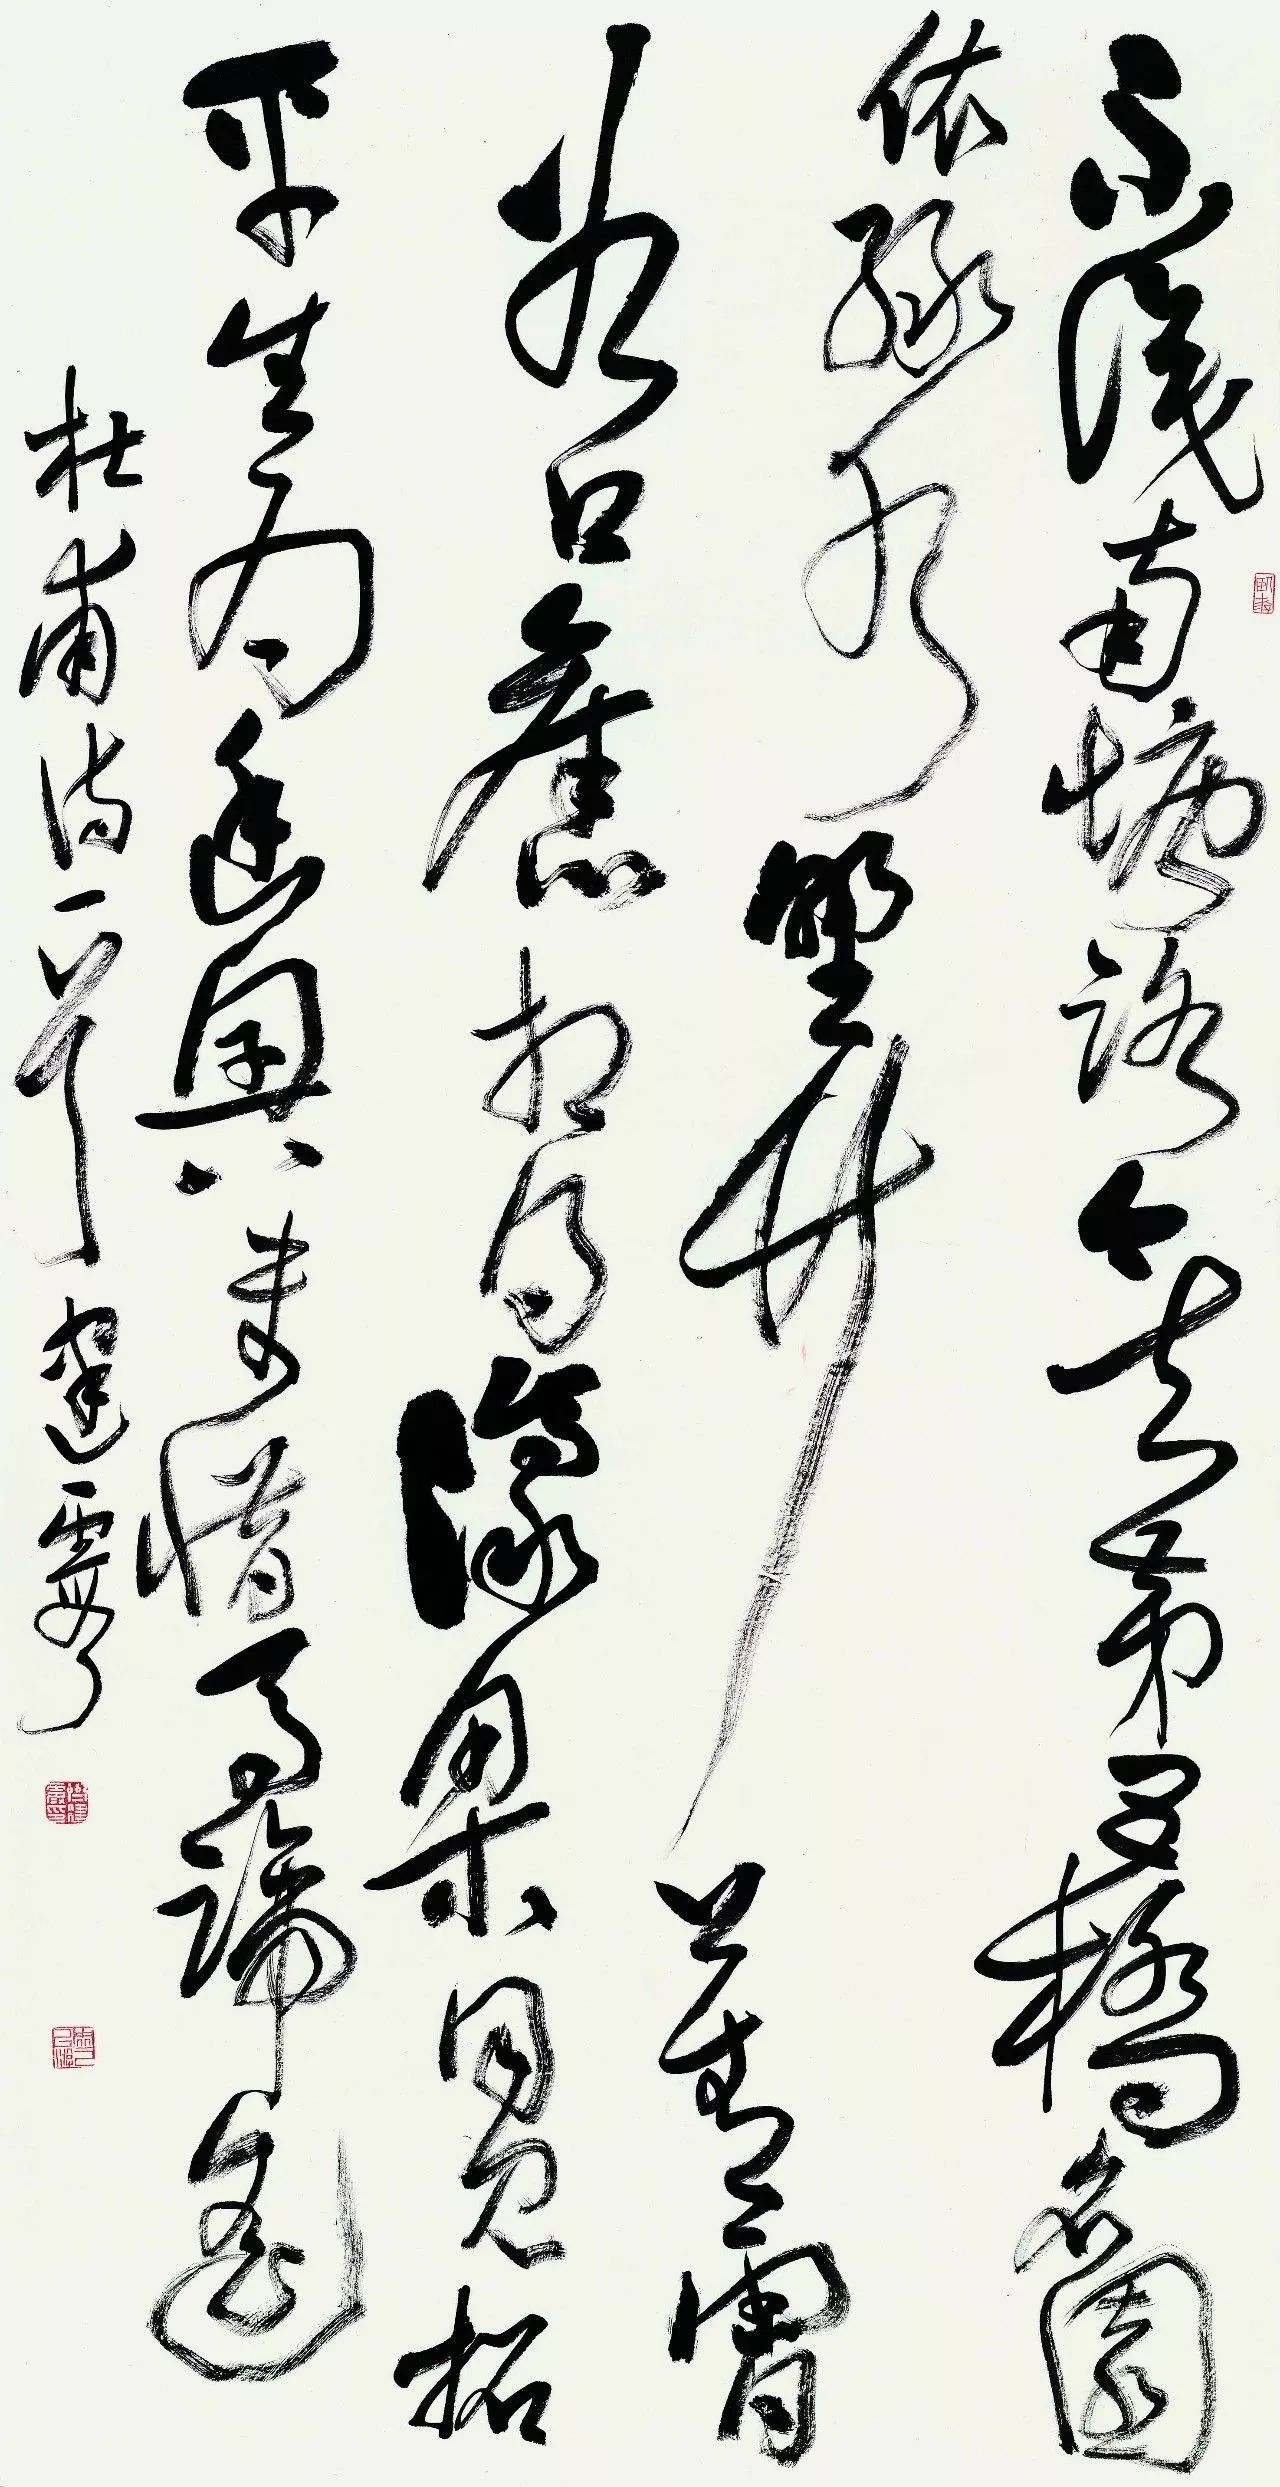 不識南塘路今知第五橋名園
依綠水野竹上青霄
谷口舊相得濠梁同見招
平生為幽興未惜馬蹄遙
杜甫詩一首